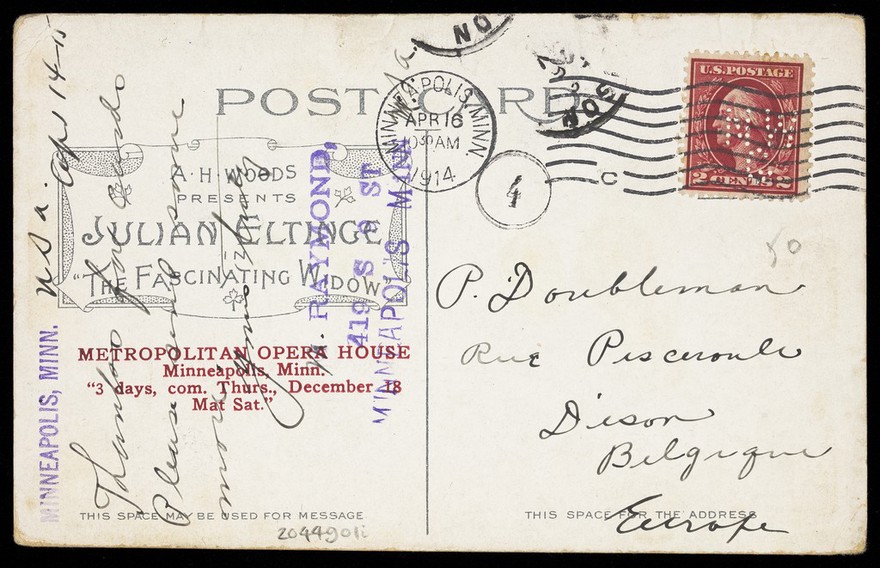 POST CARD
A·H·WOODS
PRESENTS
JULIAN ELTINGE
IN
"THE FASCINATING WIDOW"
METROPOLITAN OPERA HOUSE
Minneapolis, Minn.
"3 days, com. Thurs., December 18
Mat Sat."
THIS SPACE MAY BE USED FOR MESSAGE
2044901i
MINNEAPOLIS, MINN.
Usa. Apr 14-15
Thanks for Cards
Please send some
more
RAYMOND,
419 S 9 ST
MINNEAPOLIS MINN
MINNEAPOLIS, MINN.
APR 16
AM
1914
4
C
U.S. POSTAGE
2 CENTS 2
80
P. Doubleman
Rue Pisceroule
Dison
Belgique
Europe
THIS SPACE FOR THE ADDRESS